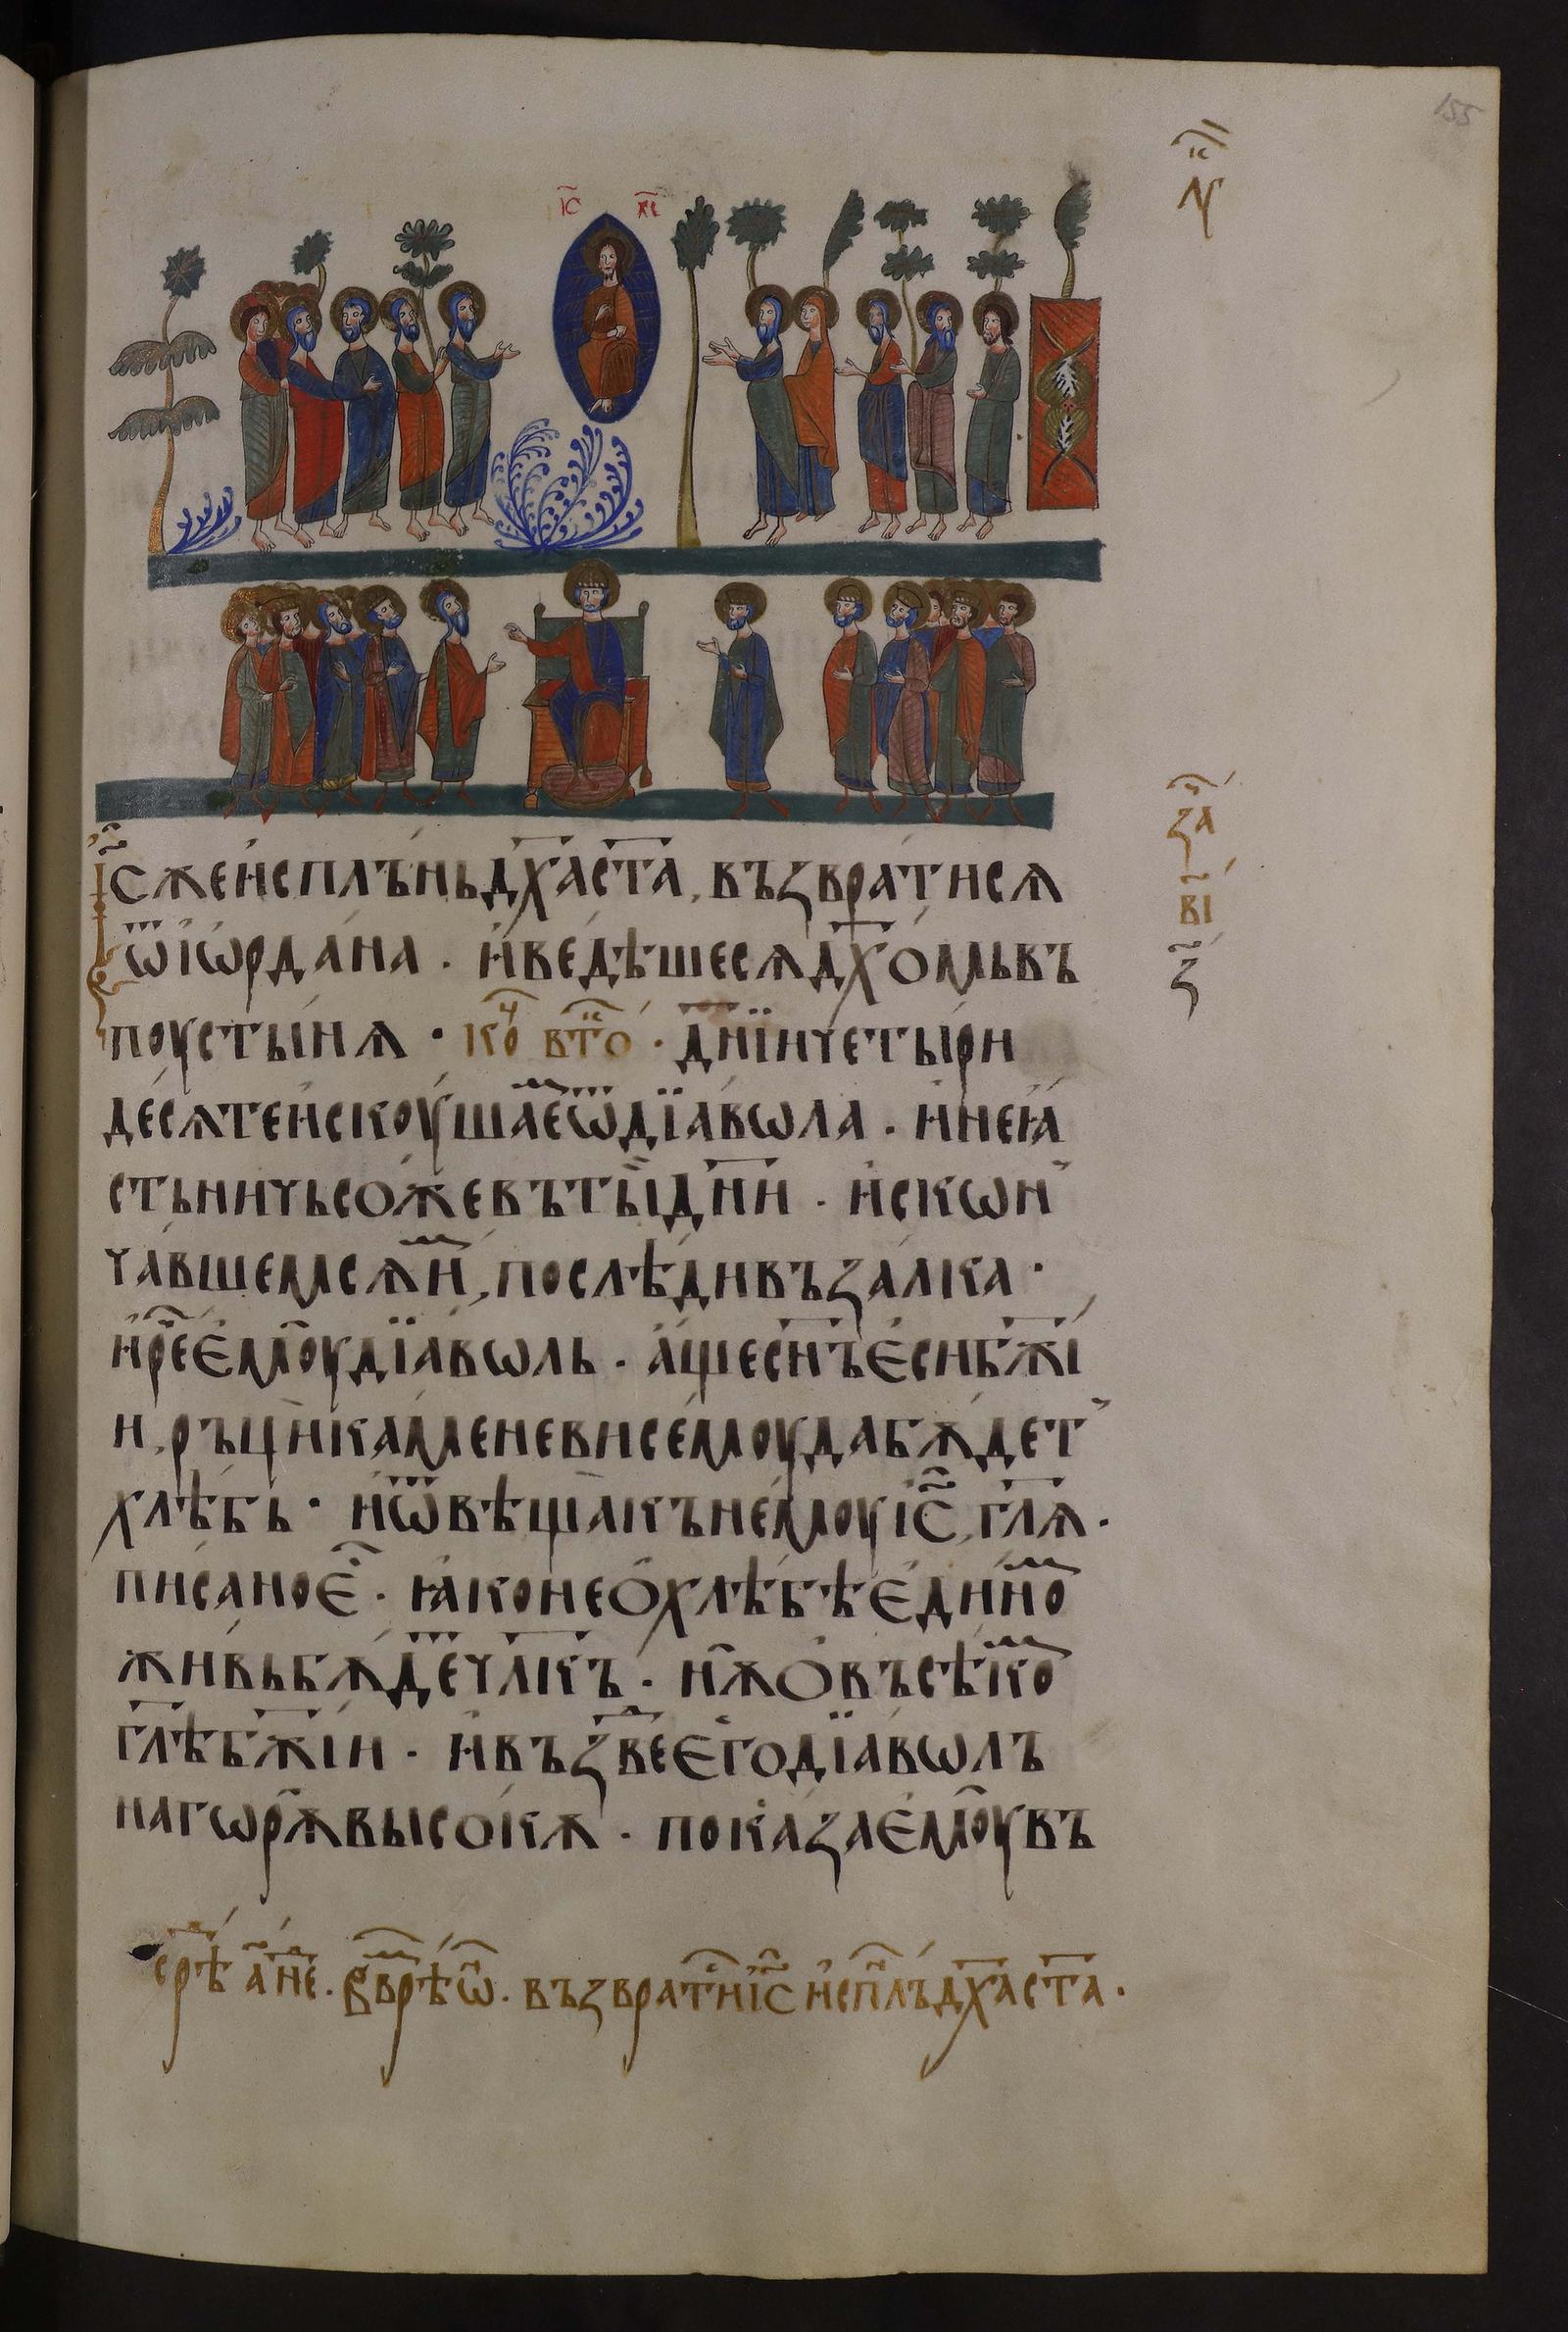 155
і҃с х҃с
І҆с же и҆спльнь дх҃а ст҃а, възврати сѧ
ѿ іѡрдана · и҆ ведѣше сѧ дх҃омь въ
поустынѧ · ко втⷪ · дн҃їи четыри
десѧте и҆скоушаеⷨ ѿ дїавѡла · и҆ не ꙗ
сть ничьсоже въ тыи дн҃и · и҆ скѡн
чавшемсѧ иⷨ, послѣди възалка ·
и҆ рⷱе е҆моу дїавѡль · а҆ще сн҃ъ е҆си бж҃і
и, ръци каменеви семоу да бѫдет
хлѣбь · и҆ ѿвѣща къ немоу і҃с, гл҃ѧ ·
писано еⷭ · ꙗко не о҆ хлѣбѣ е҆динноⷨ
живь бѫдеⷮ чл҃къ · нѫ о въсѣкоⷨ
гл҃ѣ бж҃іи · и҆ възвеⷣ е҆го дїавѡлъ
на гѡрѫ высокѫ · показа е҆моу въ
за
ві
з
възвратиⷭ і҃с и҆сплъ дх҃а ст҃а ·